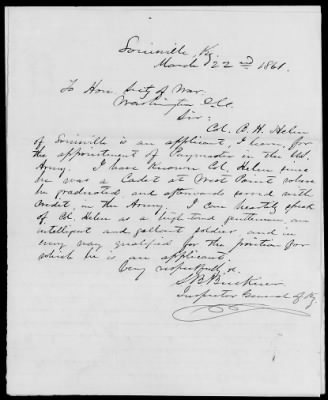 Louisville, Ky.
March 22nd 1861.
To Hon. Secty of War.
Washington D.C.
Sir:
Col. B. H. Helm
of Louisville is an applicant, I learn, for
the appointment of Paymaster in the U.S.
Army. I have known Col. Helm since
he was a Cadet at West Point where
he graduated and afterwards served with
credit, in the Army. I can heartily speak
of Col. Helm as a high toned gentleman, an
intelligent and gallant soldier, and in
every way qualified for the position for
which he is an applicant.
Very respectfully,
S. B. Buckner
Inspector General of Ky.